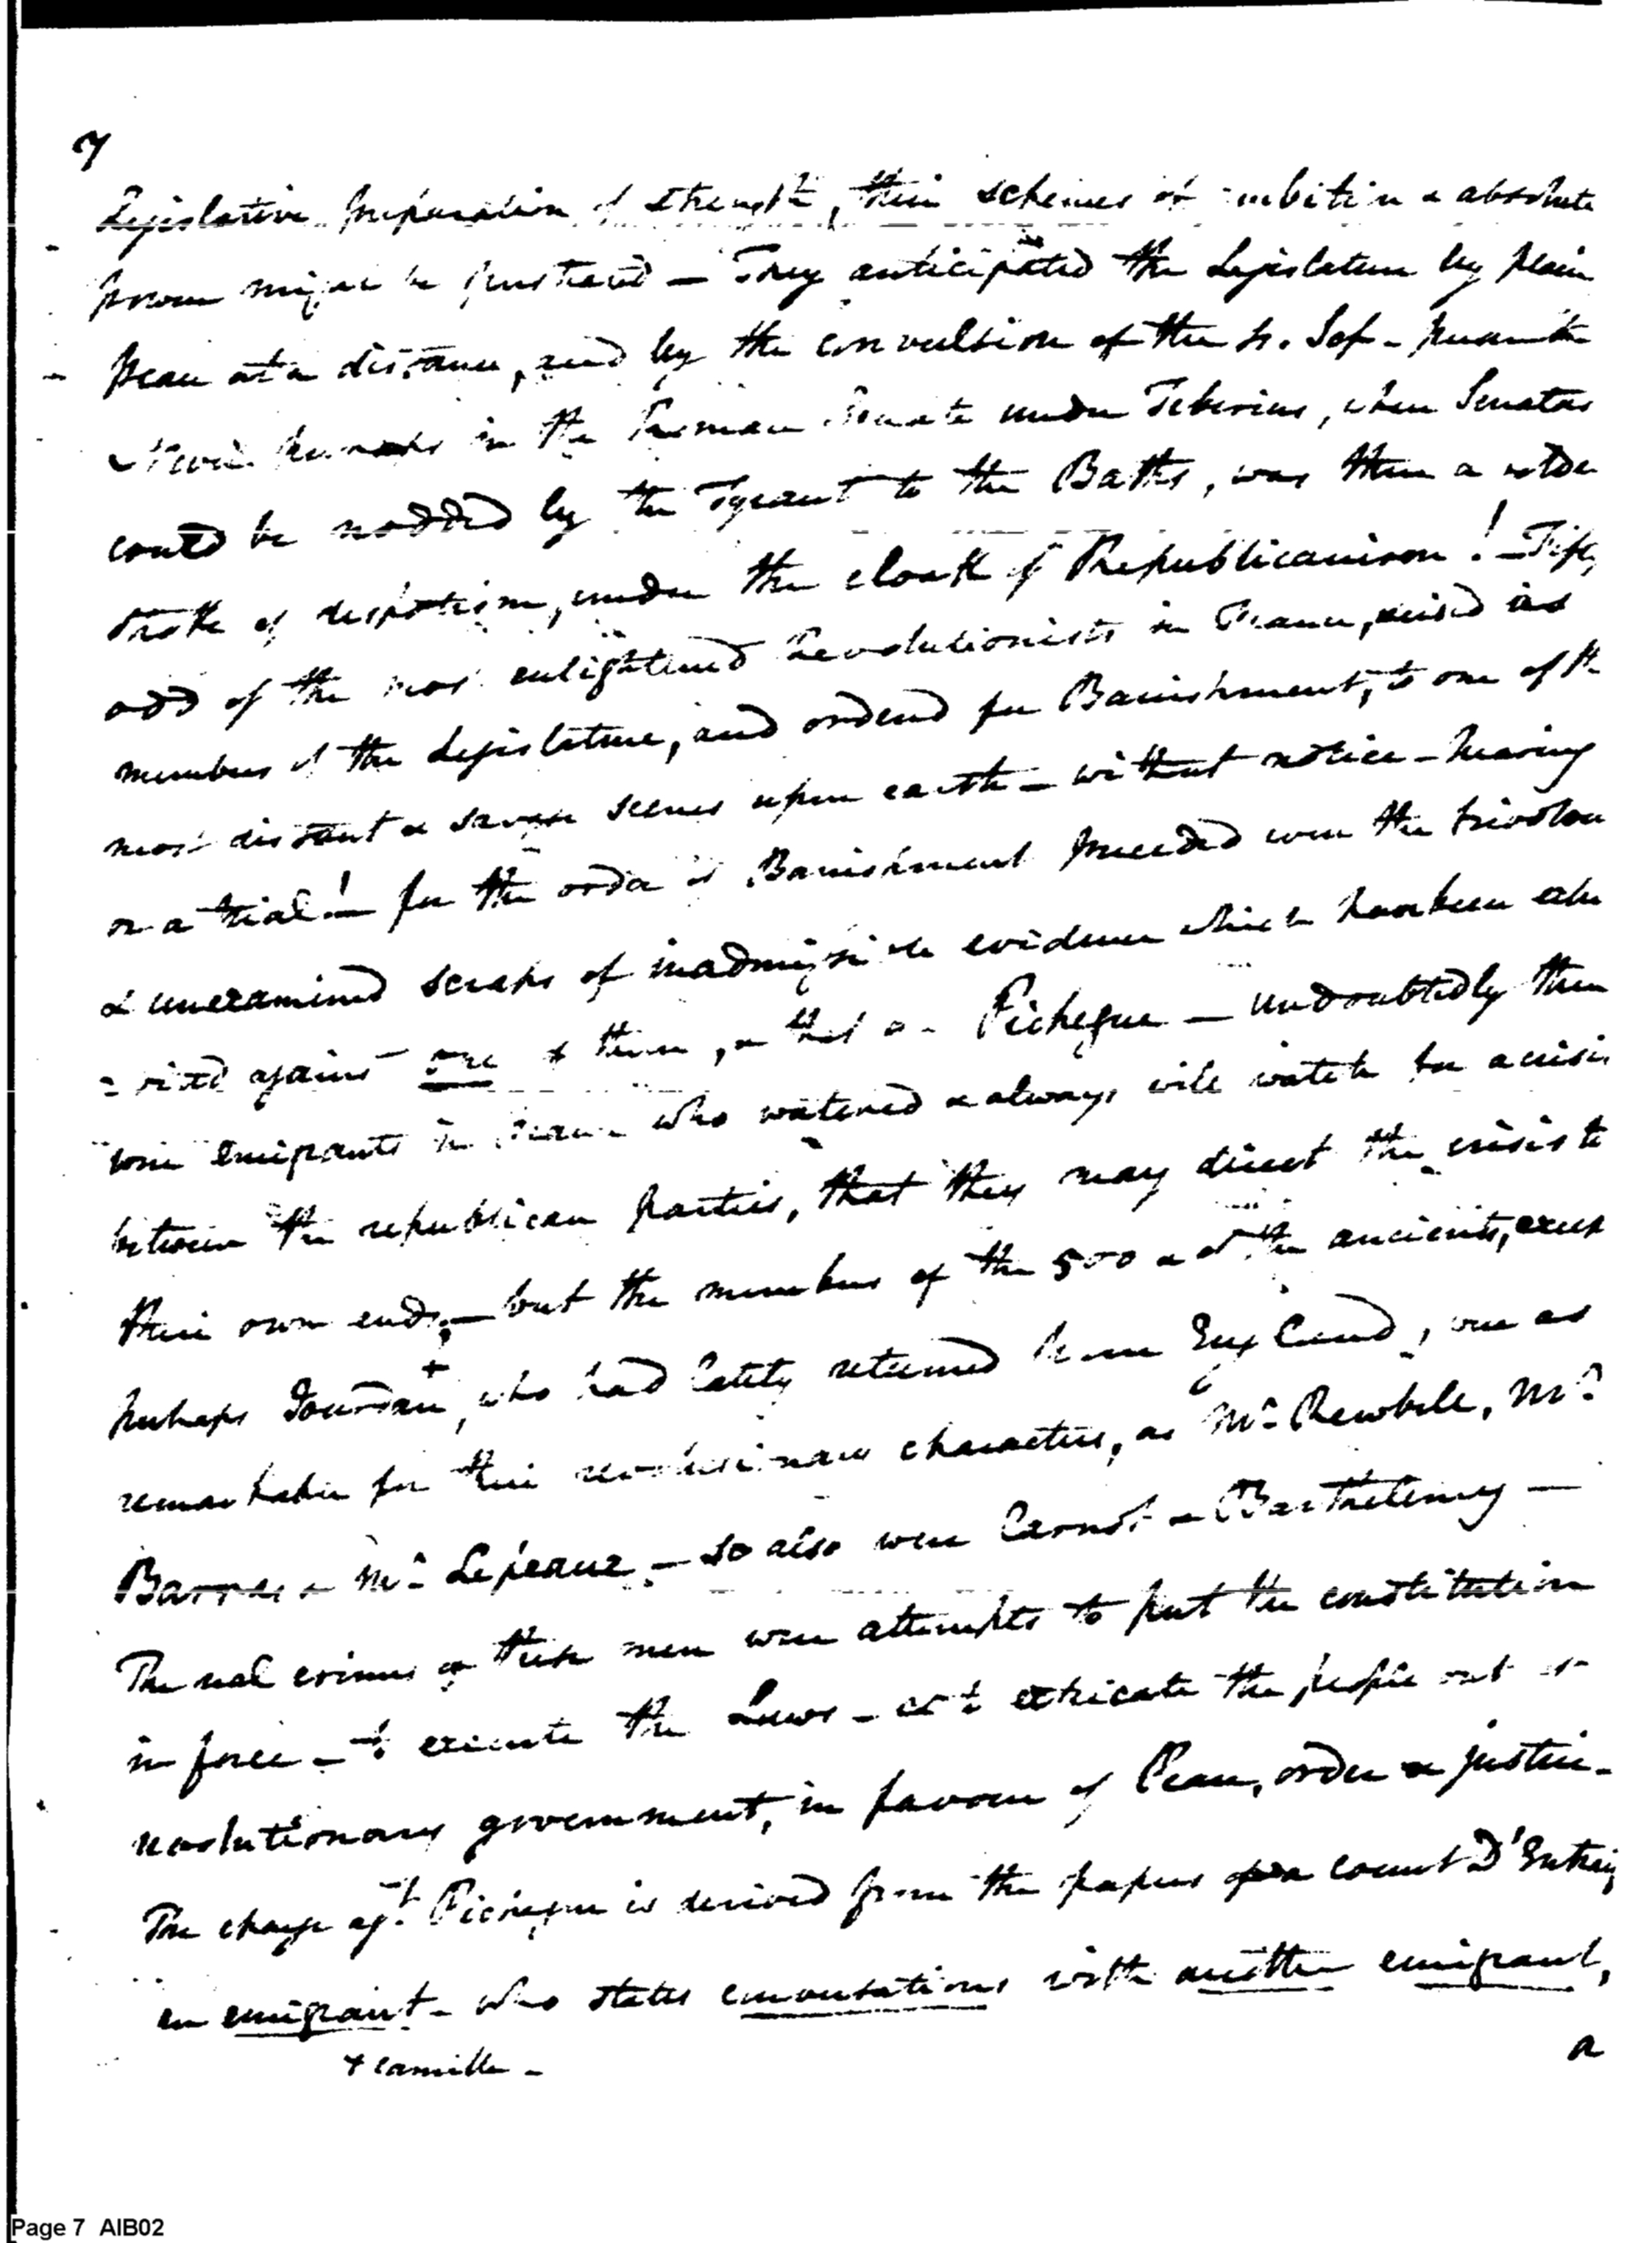 7
Legislative preparation of strength, their schemes of ambition & absolute
power might be frustrated – They anticipated the Legislature by
peace at a distance, and by the convulsion of the Sep.
perhaps in the Roman Senate under Tiberius, when Senators
could be nodded by the Tyrant to the Baths, was there a
stroke of despotism, under the cloak of Republicanism! – Fifty
odd of the most enlightened Revolutionists in France, seised as
members of the Legislature, and ordered for Banishment, to one of the
most distant & savage scenes upon earth – without notice – hearing
or a trial! – for the order of Banishment preceded even the frivolou
& unexamined scraps of inadmissible evidence which have been
against one of them, & that on Pichegru – undoubtedly there
were emigrants in France who watched & always will watch for a crisis
between the republican parties, that they may direct the crisis to
their own ends; – but the members of the 500 & of the ancients, excep
perhaps Jourdan +, who had lately returned from England, were as
remarkable for their revolutionary characters, as Mr. Rewbell, Mr.
Barras & Mr. Lepeaux – so also were Carnot & Barthelemy –
The real crimes of these men were attempts to put the constitution
in force – to execute the Laws – & to extricate the people out of
revolutionary government, in favour of Peace, order & justice –
The charge agt. Pichegru is derived from the papers of a count D'Entraig
an emigrant – who states conversations with another emigrant,
+ Camille –
a
Page 7 AIB02